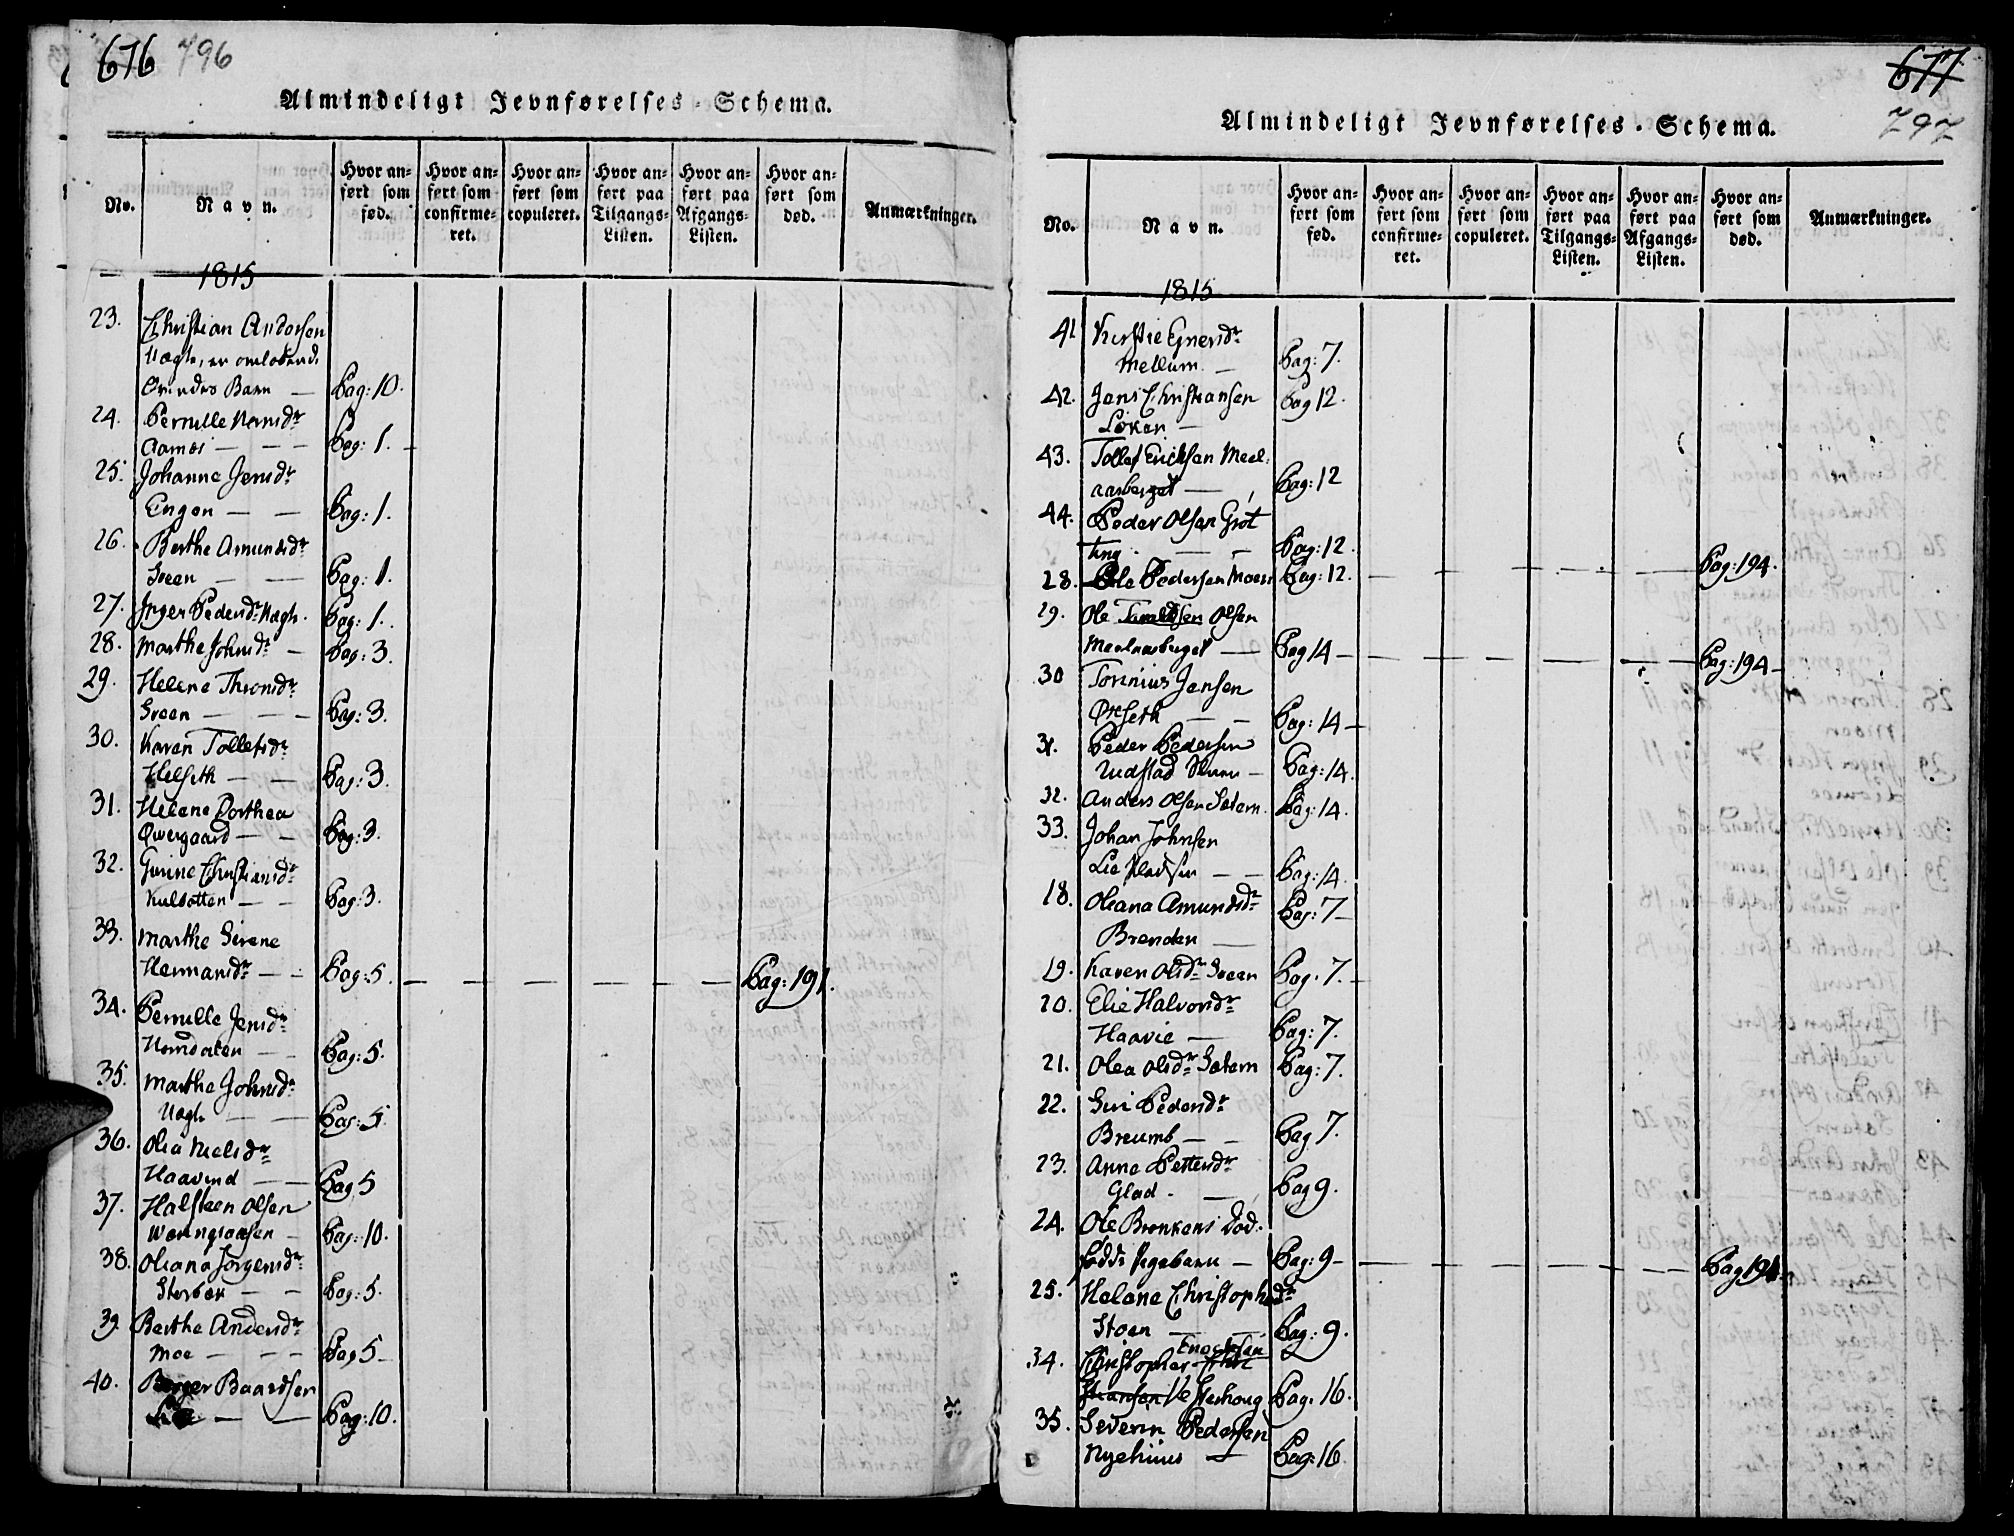 676 796
Almindeligt Jevnførelses-Schema.
No.
Navn.
Hvor an-
ført som
fød.
Hvor an-
ført som
confirme-
ret.
Hvor an-
ført som
copuleret.
Hvor an-
ført paa
Tilgangs-
Listen.
Hvor an-
ført paa
Afgangs-
Listen.
Hvor an-
ført som
død.
Anmærkninger.
1815
23. Christian Andersen
omløbend.
Barn — Pag: 10.
24. Pernille
Aamos — — — Pag: 1. —
25. Johanne Jensdr
Engen — — Pag: 1.
26. Berthe Amundsdr
Sveen — — Pag: 1.
27. Inger Pedersdr Hagh. Pag: 1.
28. Marthe Johnsdr — Pag: 3.
29. Helene Thronsdr
Sveen — — — Pag: 3.
30. Karen Tollefsdr
Helseth — — Pag: 3.
31. Helene Dorthea
Øvergaard — — Pag: 3.
32. Gurine Christiansdr
— — Pag: 3.
33. Marthe Sirene
Hermansdr — — Pag: 5. — — — — — — Pag: 191.
34. Pernille Jensdr
— — Pag: 5.
35. Marthe Johnsdr
Hagh. — — Pag: 5
36. Olia Nielsdr
Haavind — — Pag 5
37. Halsteen Olsen
— Pag: 10.
38. Oleana Jørgensdr
Storbæk — — Pag: 5.
39. Berthe Andersdr
Moe — — — Pag 5 —
40. Baardsen
— — Pag: 10.
677
797
Almindeligt Jevnførelses-Schema.
No.
Navn.
Hvor an-
ført som
fød.
Hvor an-
ført som
confirme-
ret.
Hvor an-
ført som
copuleret.
Hvor an-
ført paa
Tilgangs-
Listen.
Hvor an-
ført paa
Afgangs-
Listen.
Hvor an-
ført som
død.
Anmærkninger.
1815
41 Kirstie Enersdr
Mellum. — Pag: 7.
42. Jens Christiansen
Løken — Pag 12.
43. Tollef Ericksen Meel-
aasberget — Pag: 12
44. Peder Olsen Grøt
ting. — — Pag: 12.
28. Ole Pedersen Moen Pag: 12. — — — — — Pag: 194.
29. Ole Olsen
Meelaasberget — Pag 14 — — — — — — Pag: 194 —
30 Torinius Jensen
Øxseth — — Pag: 14 —
31. Peder Pedersen
Rudstad — Pag: 14.
32. Anders Olsen Sætern. Pag: 14.
33. Johan Johnsen
Lie — — Pag: 14.
18. Oleana Amundsdr
Brenden — Pag: 7 —
19. Karen Olsdr Sveen Pag. 7. —
20. Elie Halvorsdr
Haavie — Pag: 7.
21. Olea Olsdr Sætern Pag: 7.
22. Siri Pedersdr
— — Pag 7.
23. Anne Pettersdr
Glad. — Pag 9.
24. Ole Brenkens død-
fødde Pigebarn — Pag: 9 — — — — — Pag 191.
25. Helene Christophersdr
Stoen — — Pag: 9.
Enocksen
34. Christopher
Vesterhoug Pag. 16.
35. Severin Pedersen
Nyehuus — Pag: 16.